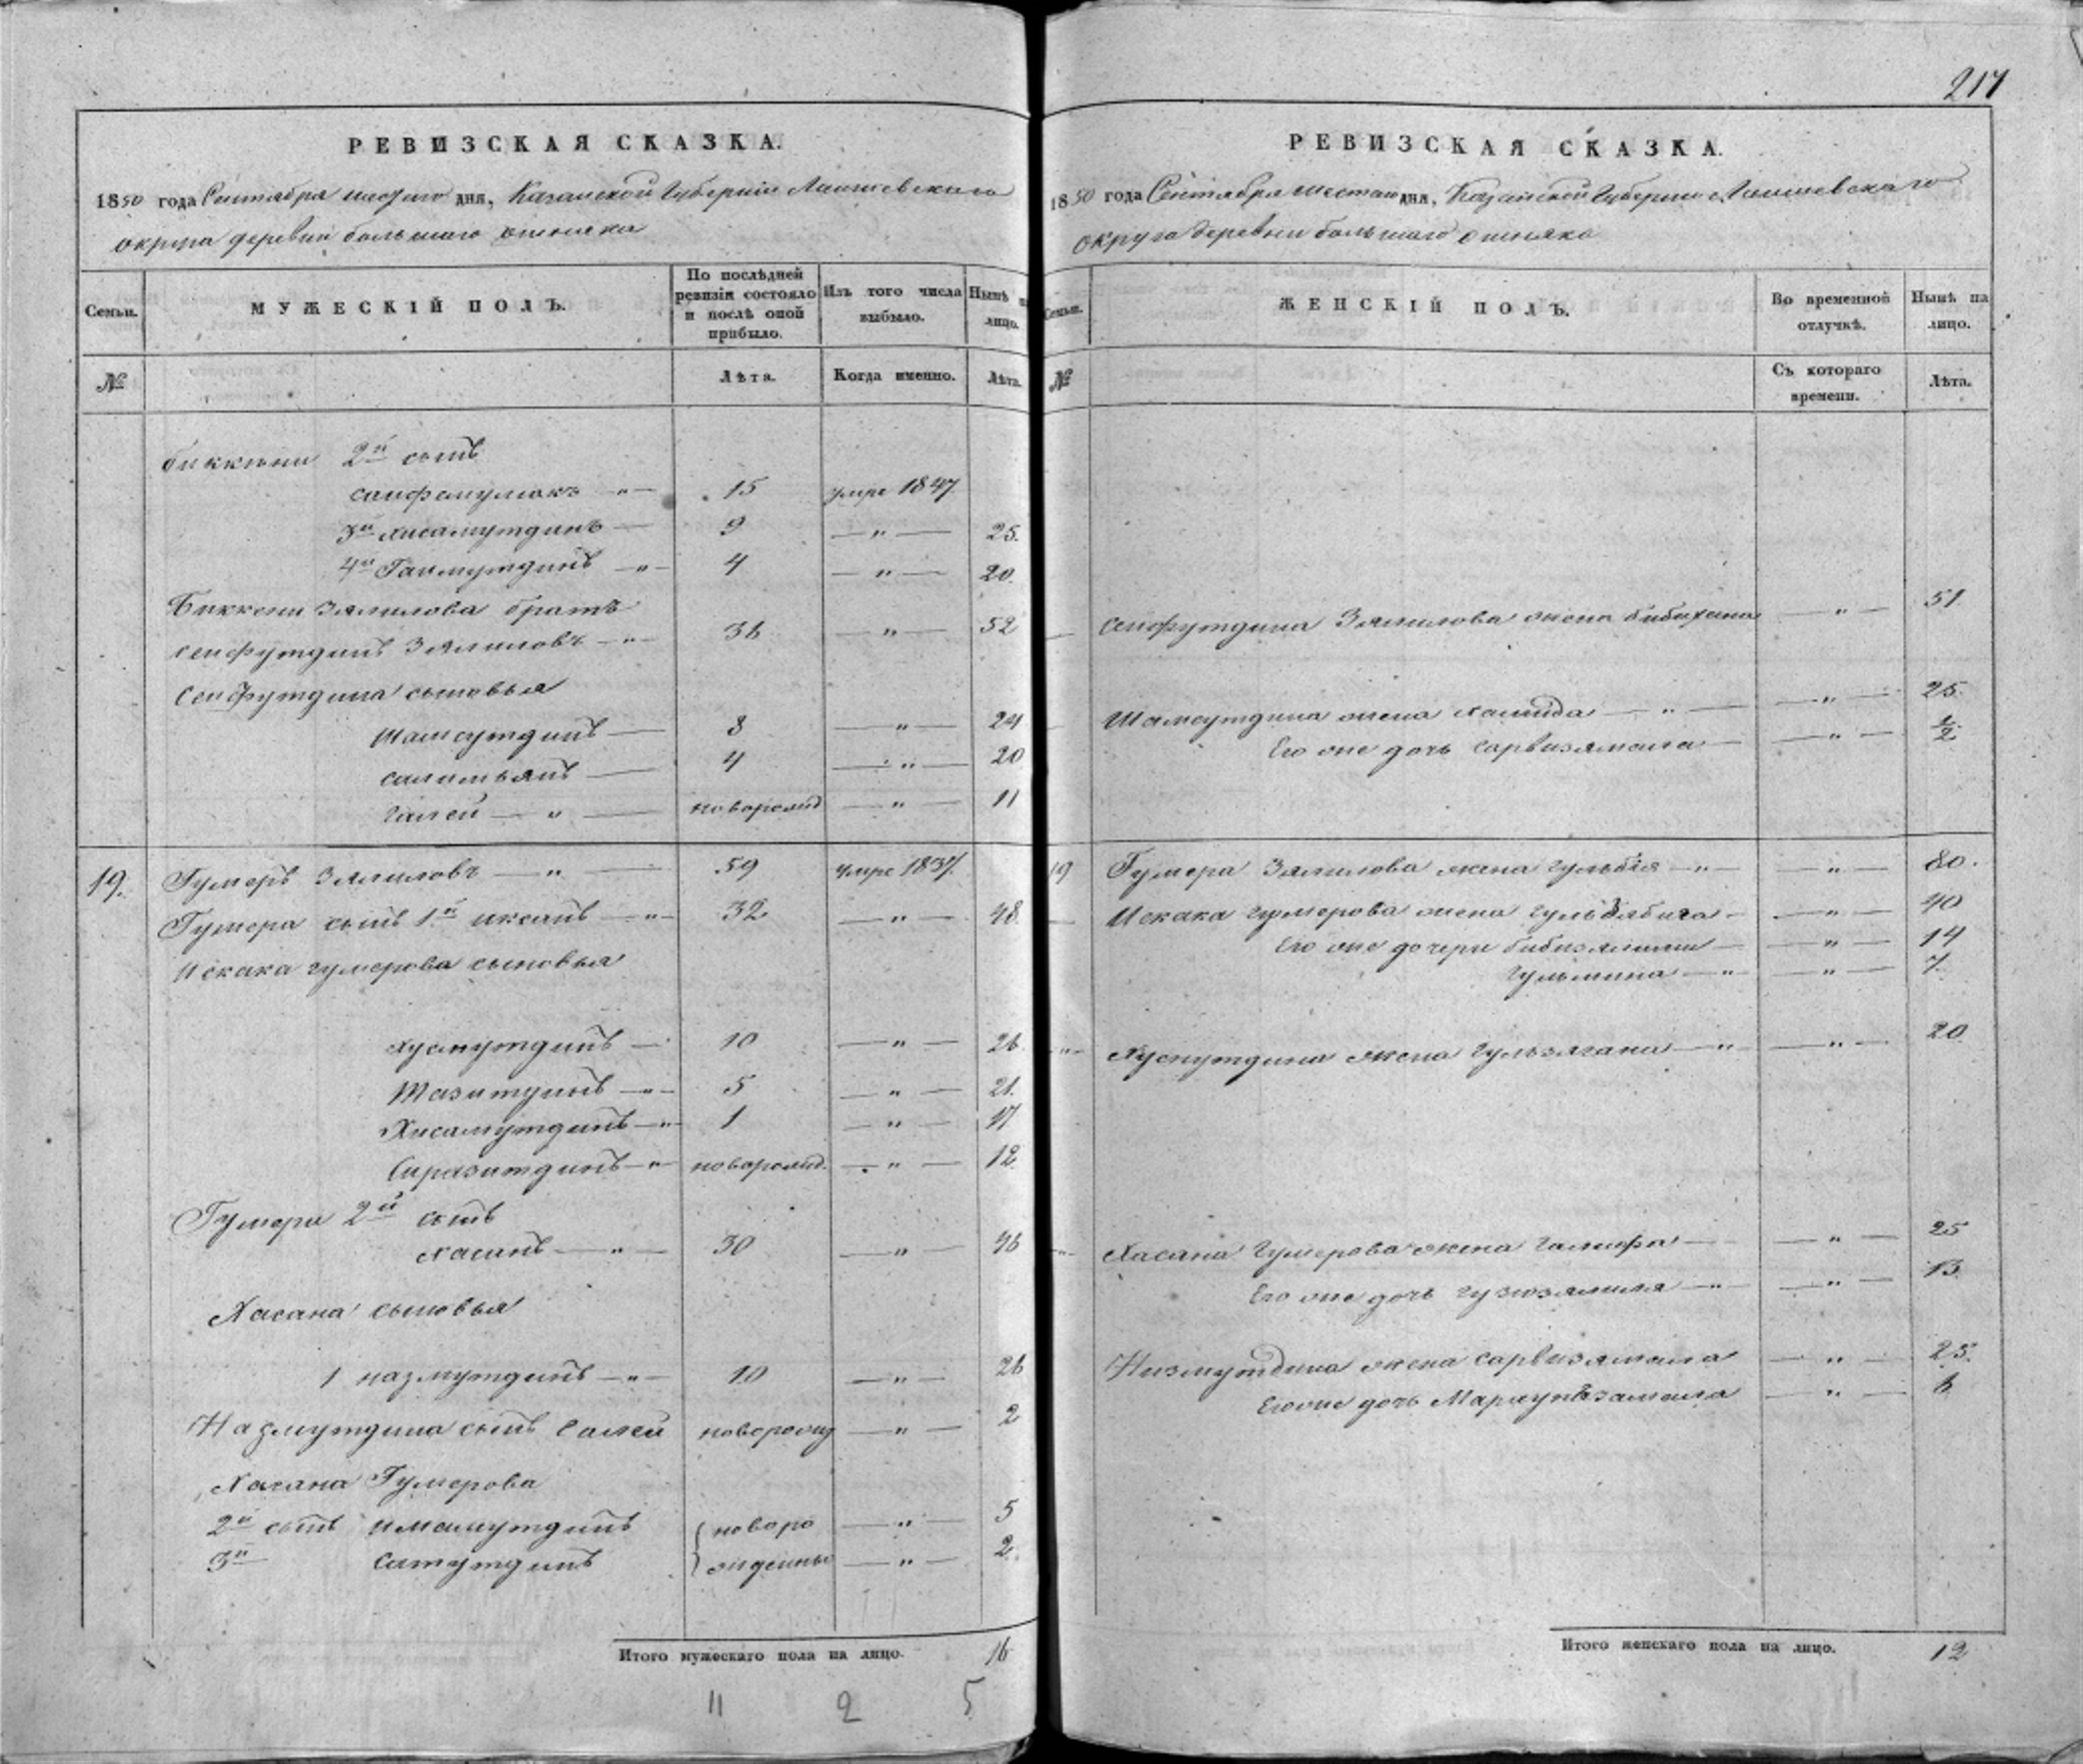 217
РЕВИЗСКАЯ СКАЗКА.
1850 года Сентября шестаго дня, Казанской Губернии Лаишевскаго
округа деревни большаго ошняка
Семьи.
МУЖЕСКІЙ ПОЛЪ.
По послѣдней ревизіи состояло и послѣ оной прибыло.
Изъ того числа выбыло.
Нынѣ на лицо.
№
Лѣта.
Когда именно.
Лѣта.
биккени 2й сынъ
сайфамулюкъ — 15 умре 1847
3й хисамутдинъ — 9 — " — 25.
4й Гаимутдинъ — " — 4 — " — 20.
Биккени Зялилова братъ
сейфутдинъ Зялиловъ — " — 36 — " — 52
сейфутдина сыновья
Шамсутдинъ — 8 — " — 24
салимьянъ — 4 — " — 20
галей — " — новорожд — " — 11
19. Гумеръ Зялиловъ — " — 59 умре 1837.
Гумера сынъ 1й искакъ — " — 32 — " — 48.
Искака гумерова сыновья
хуснутдинъ — 10 — " — 26
— " — 5 — " — 21.
Хисамутдинъ — " — 1 — " — 17
Сиразитдинъ — " — новорожд. — " — 12.
Гумера 2й сынъ
хасанъ — " — 30 — " — 46
Хасана сыновья
1 назмутдинъ — " — 10 — " — 26
Назмутдина сынъ Галей новорожд — " — 2
Хасана Гумерова
2й сынъ Имамутдинъ новоро — " — 5
3й жденны — " — 2.
Итого мужескаго пола на лицо. 16
11 2 5
РЕВИЗСКАЯ СКАЗКА.
1850 года Сентября шестаго дня, Казанской Губернии Лаишевскаго
округа деревни большаго ошняка
Семьи.
ЖЕНСКІЙ ПОЛЪ.
Во временной отлучкѣ.
Нынѣ на лицо.
№
Съ котораго времени.
Лѣта.
сейфутдина Зялилова жена бибихана — " — 51
Шамсутдина жена хамида — " — — " — 25.
Его же дочь сарвизямала — — " — ½
19 Гумера Зялилова жена гульбія — " — — " — 80.
Искака гумерова жена — " — 40
Его же дочери бибизямили — — " — 14
гульмина — " — — " — 7.
" Хуснутдина жена гульзягана — " — — " — 20
Хасана Гумерова жена галифа — — " — 25
Его же дочь — " — — " — 13
Низмутдина жена сарвизямала — " — 25.
Его же дочь — " — 6
Итого женскаго пола на лицо. 12